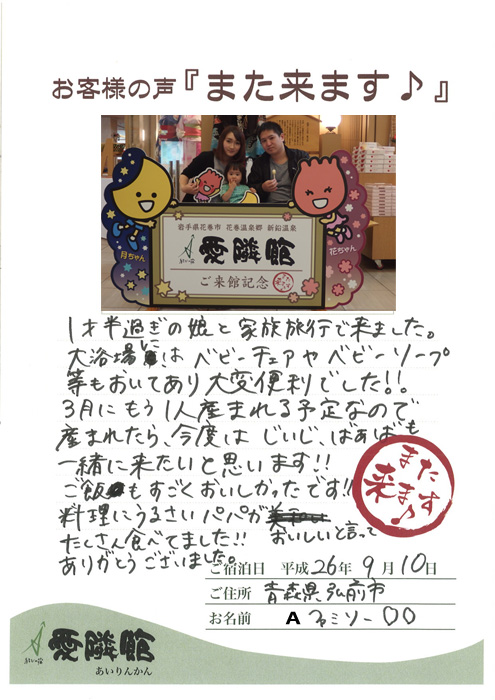 お客様の声『また来ます♪』
岩手県花巻市 花巻温泉郷 新鉛温泉
愛隣館
ご来館記念
月ちゃん
花ちゃん
1才半過ぎの娘と家族旅行で来ました。
大浴場には ベビーチェアや ベビーソープ
等もおいてあり 大変便利でした!!
3月に もう1人産まれる予定なので
産まれたら、今度は じいじ、ばぁばも
一緒に来たいと思います!!
ご飯もすごくおいしかったです!!
料理にうるさいパパが
おいしいと言って
たくさん食べてました!!
ありがとうございました。
また来ます♪
ご宿泊日 平成26年 9月10日
ご住所 青森県弘前市
お名前 A ファミリー 〇〇
愛隣館
あいりんかん